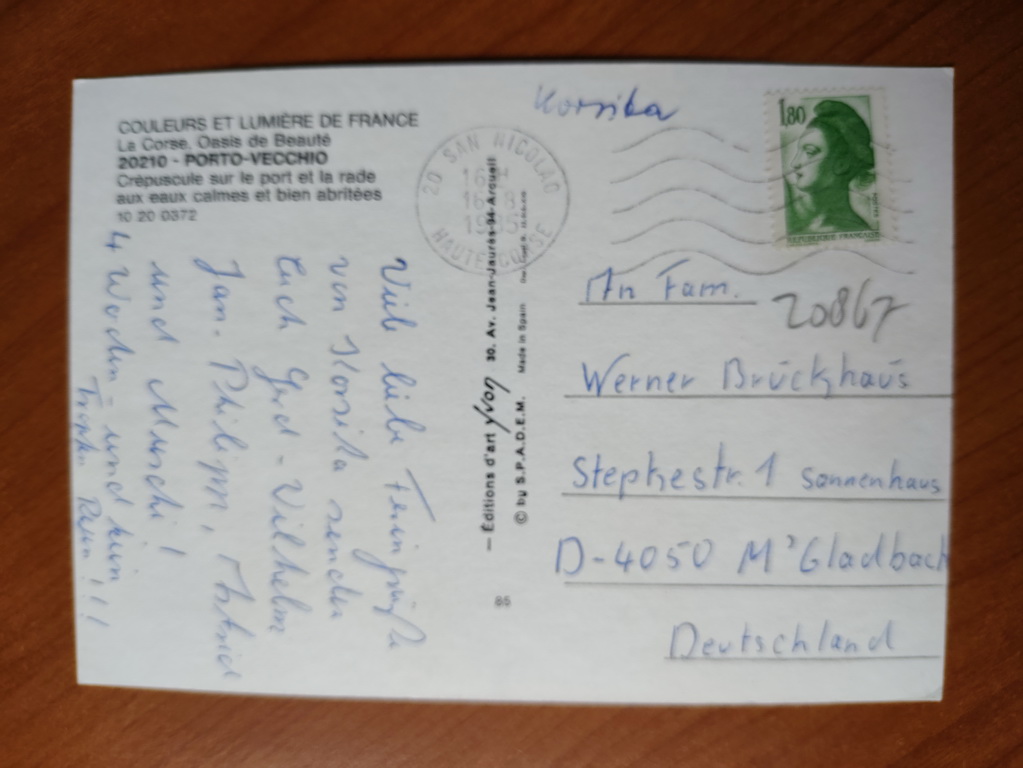 COULEURS ET LUMIÈRE DE FRANCE
La Corse, Oasis de Beauté
20210 - PORTO-VECCHIO
Crépuscule sur le port et la rade
aux eaux calmes et bien abritées
10 20 0372
Viele liebe Feriengrüße
von Korsika senden
Euch Gerd-Wilhelm
Jan-Philipp, Astrid
und Muschi!
4 Wochen - und kein
Tropfen Regen!!!
20 SAN NICOLAO
HAUTE CORSE
— Éditions d'art yvon 30, Av. Jean-Jaurès-94-Arcueil
© by S.P.A.D.E.M. Made in Spain
85
Korsika
1,80
REPUBLIQUE FRANÇAISE
An Fam.
20867
Werner Brückhaus
Stepkestr. 1 Sonnenhaus
D-4050 M'Gladbach
Deutschland